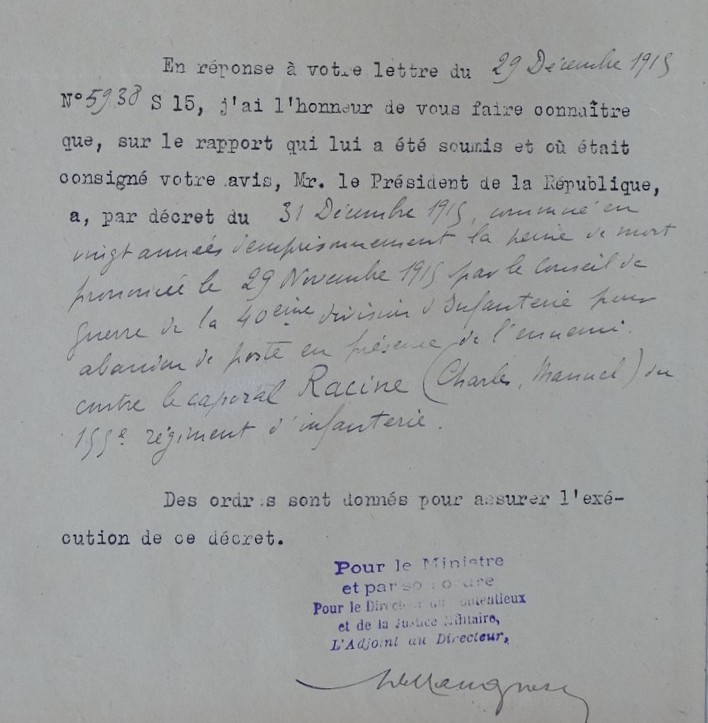 En réponse à votre lettre du 29 Décembre 1915
N° 5938 S 15, j'ai l'honneur de vous faire connaître
que, sur le rapport qui lui a été soumis et où était
consigné votre avis, Mr. le Président de la République,
a, par décret du 31 Décembre 1915, commué en
vingt années d'emprisonnement la peine de mort
prononcée le 29 Novembre 1915 par le Conseil de
guerre de la 40eme division d'Infanterie pour
abandon de poste en présence de l'ennemi.
contre le caporal Racine (Charles, Manuel) du
155e régiment d'infanterie.
Des ordres sont donnés pour assurer l'exé-
cution de ce décret.
Pour le Ministre
et par son ordre
Pour le Directeur du Contentieux
et de la Justice Militaire,
L'Adjoint au Directeur,